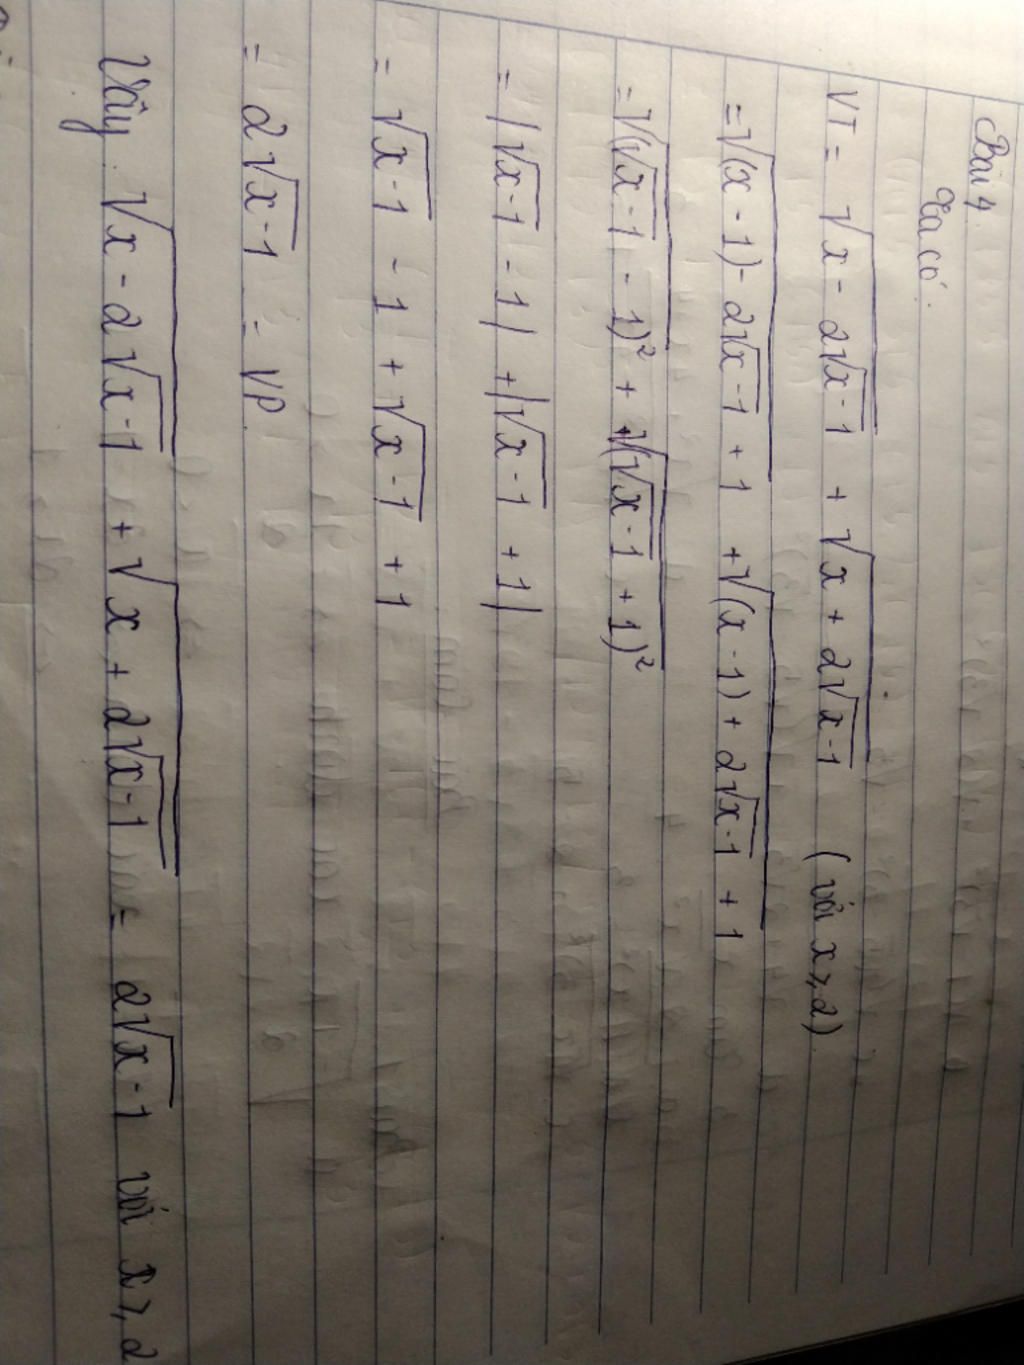 Bài 4.
Ta có:
VT = √(x - 2√(x-1)) + √(x + 2√(x-1)) (với x ≥ 2)
= √((x - 1) - 2√(x-1) + 1) + √((x - 1) + 2√(x-1) + 1)
= √((√(x-1) - 1)²) + √((√(x-1) + 1)²)
= |√(x-1) - 1| + |√(x-1) + 1|
= √(x-1) - 1 + √(x-1) + 1
= 2√(x-1) = VP.
Vậy √(x - 2√(x-1)) + √(x + 2√(x-1)) = 2√(x-1) với x ≥ 2